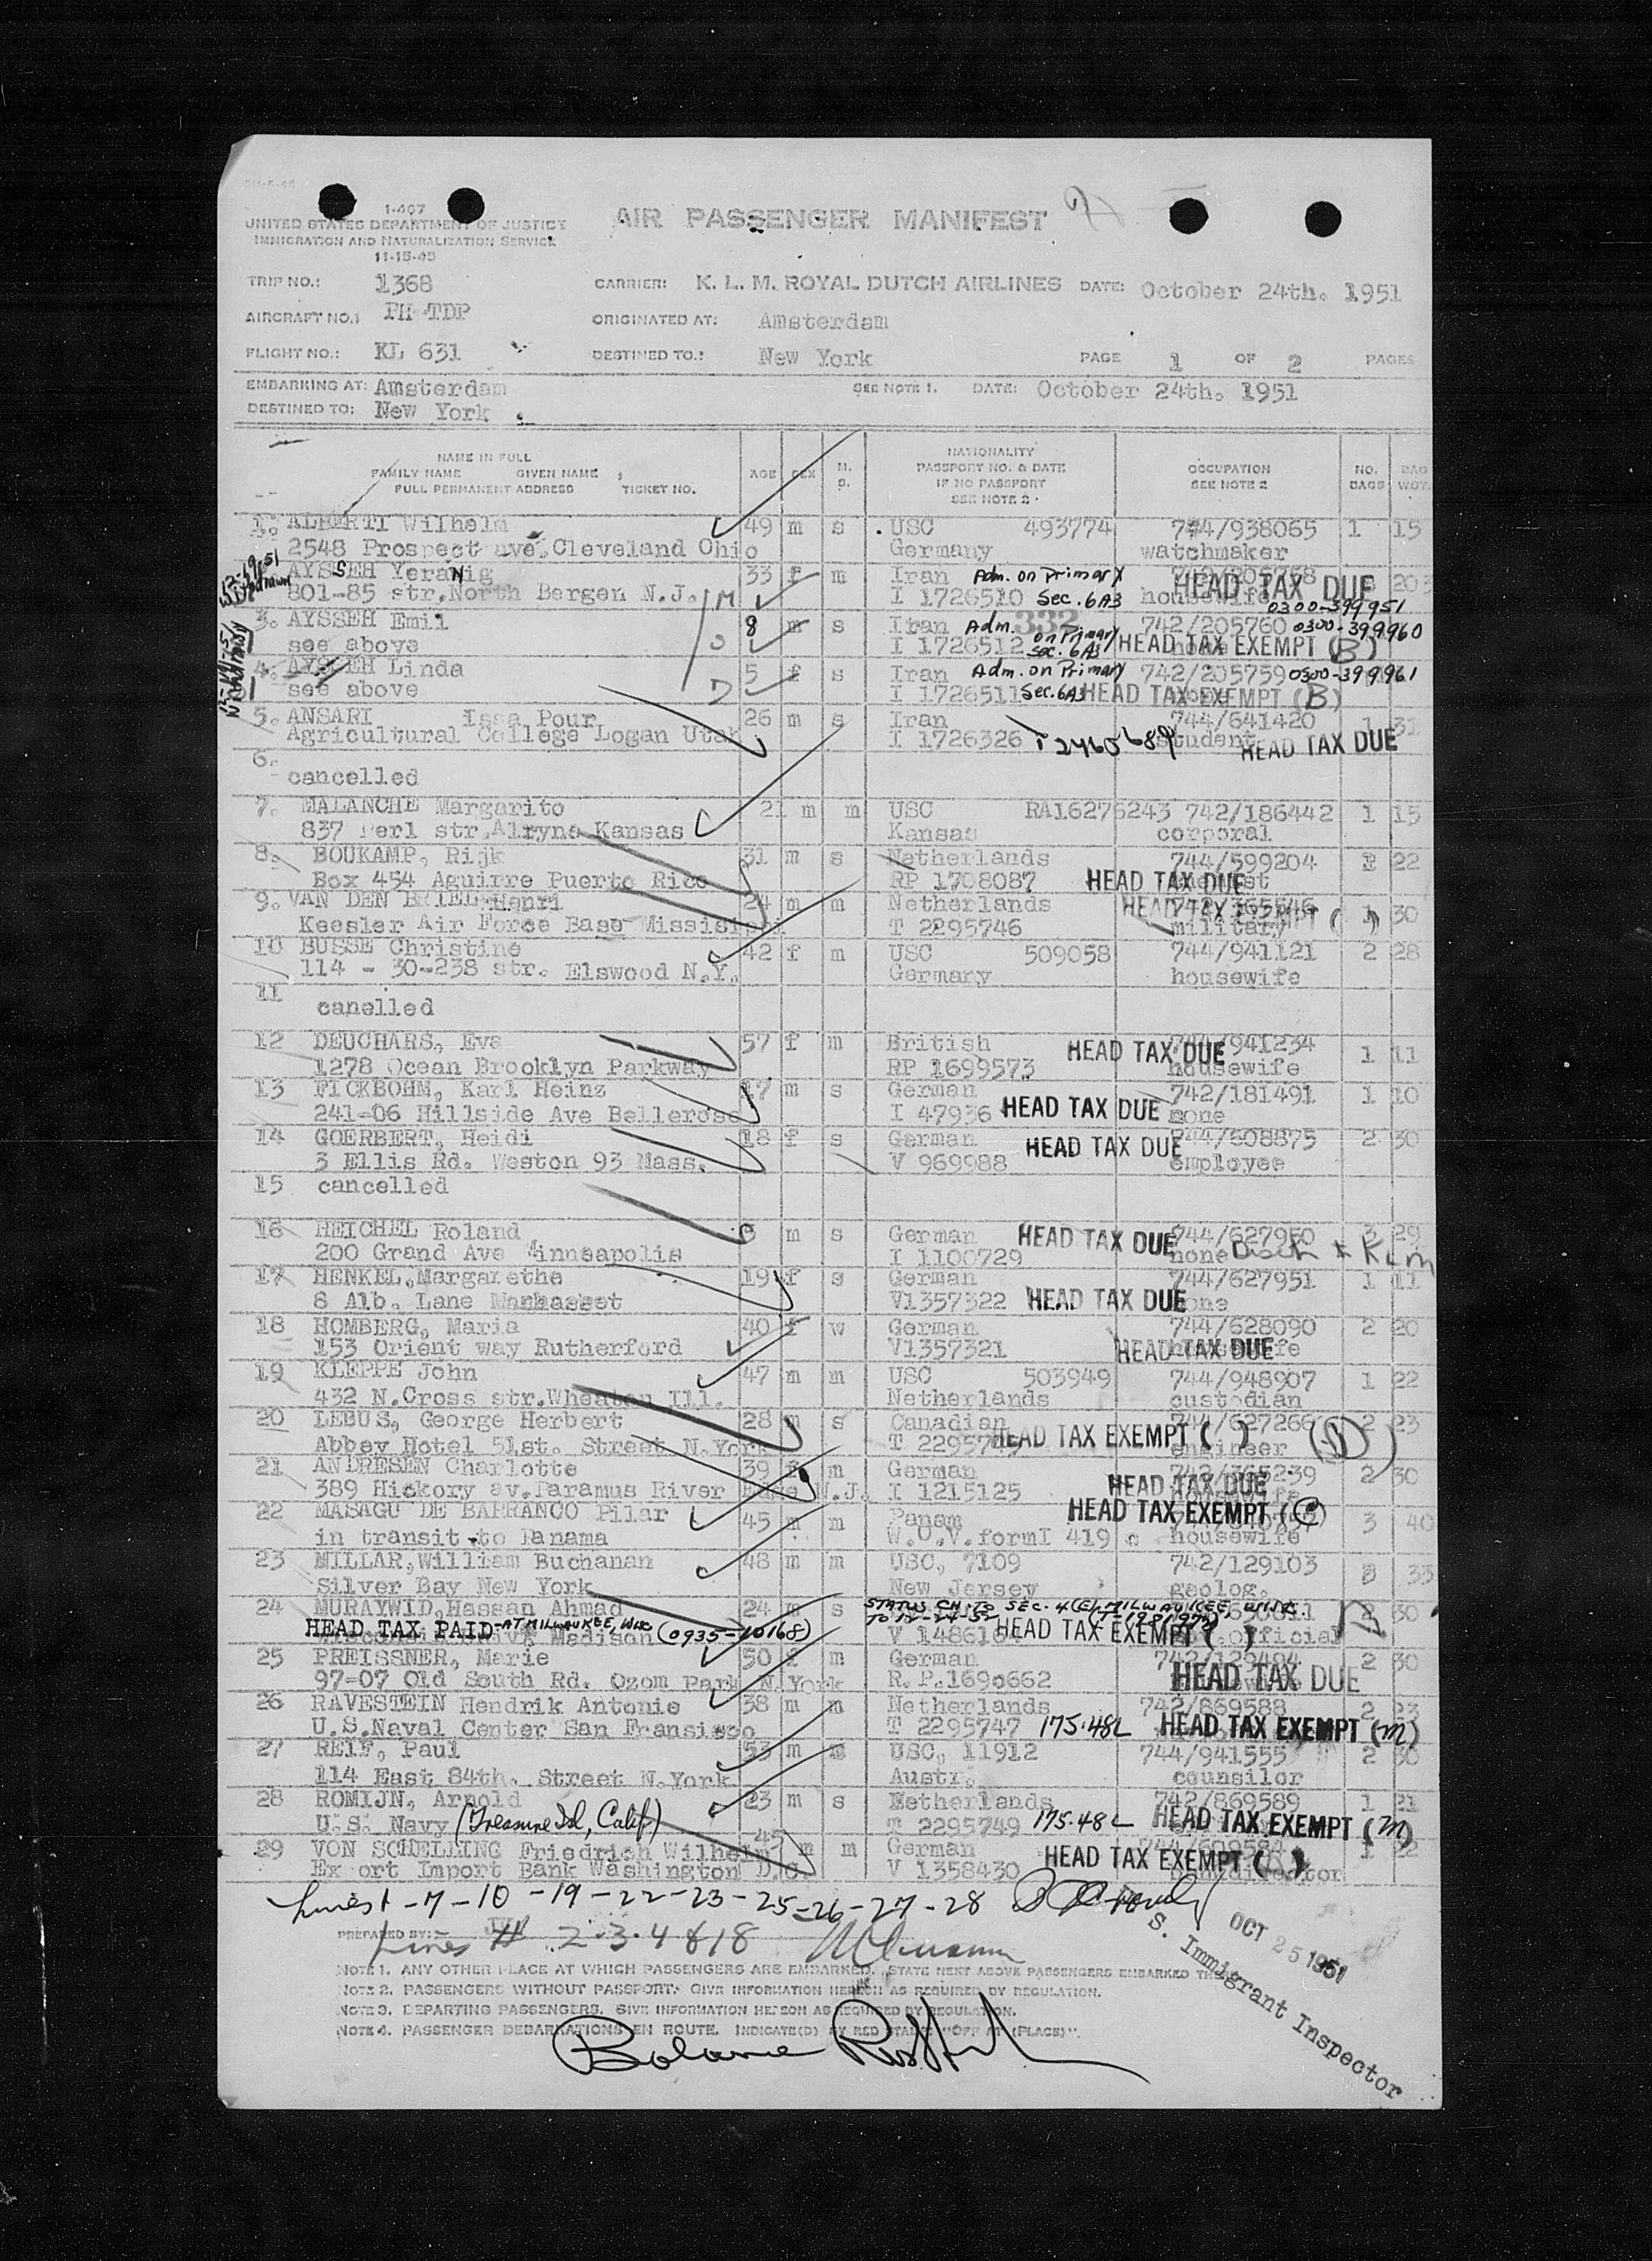 1-467
UNITED STATES DEPARTMENT OF JUSTICE
IMMIGRATION AND NATURALIZATION SERVICE
11-15-45
AIR PASSENGER MANIFEST
TRIP NO.: 1368 CARRIER: K. L. M. ROYAL DUTCH AIRLINES DATE: October 24th. 1951
AIRCRAFT NO.: PH-TDP ORIGINATED AT: Amsterdam
FLIGHT NO.: KL 631 DESTINED TO.: New York PAGE 1 OF 2 PAGES
EMBARKING AT: Amsterdam SEE NOTE 1. DATE: October 24th. 1951
DESTINED TO: New York
NAME IN FULL
FAMILY NAME GIVEN NAME
FULL PERMANENT ADDRESS TICKET NO.
AGE SEX M. S.
NATIONALITY
PASSPORT NO. & DATE
IF NO PASSPORT
SEE NOTE 2
OCCUPATION
SEE NOTE 2
NO. BAGS BAG WGT.
1. ALBERTI Wilhelm 49 m s USC 493774 744/938065 1 15
2548 Prospect ave. Cleveland Ohio Germany watchmaker
AYSSEH Yeranig 33 f m Iran Adm. on Primary HEAD TAX DUE
801-85 str. North Bergen N.J. I 1726510 Sec. 6A3 housewife 0300-399951
3. AYSSEH Emil 8 m s Iran Adm. 332 742/205760 0300-399960
see above I 1726512 on Primary Sec. 6A3 HEAD TAX EXEMPT (B)
4. AYSSEH Linda 5 f s Iran Adm. on Primary 742/205759 0300-399961
see above I 1726511 Sec. 6A3 HEAD TAX EXEMPT (B)
5. ANSARI Issa Pour 26 m s Iran 744/641420 1 31
Agricultural College Logan Utah I 1726326 student HEAD TAX DUE
6.
cancelled
7. MALANCHE Margarito 21 m m USC RA16276243 742/186442 1 15
837 Perl str. Alryne Kansas Kansas corporal
8. BOUKAMP, Rijk 31 m s Netherlands 744/599204 22
Box 454 Aguirre Puerto Rico RP 1708087 HEAD TAX DUE
9. VAN DEN BRIEL Henri 24 m m Netherlands HEAD TAX EXEMPT ( ) 1 30
Keesler Air Force Base Missisippi T 2295746 military
10 BUSSE Christine 42 f m USC 509058 744/941121 2 28
114 - 30-238 str. Elswood N.Y. Germany housewife
11
canelled
12 DEUCHARS, Eva 57 f m British HEAD TAX DUE 744/941234 1 11
1278 Ocean Brooklyn Parkway RP 1699573 housewife
13 FICKBOHM, Karl Heinz 17 m s German 742/181491 1 10
241-06 Hillside Ave Bellerose I 47936 HEAD TAX DUE none
14 GOERBERT, Heidi 18 f s German HEAD TAX DUE 744/608875 2 30
3 Ellis Rd. Weston 93 Mass. V 969988 employee
15 cancelled
16 HEICHEL Roland m s German HEAD TAX DUE 744/627950 3 29
200 Grand Ave Minneapolis I 1100729 none
17 HENKEL, Margaretha 19 f s German 744/627951 1 11
8 Alb. Lane Manhasset V1357322 HEAD TAX DUE none
18 HOMBERG, Maria 40 f w German 744/628090 2 20
153 Orient way Rutherford V1357321 HEAD TAX DUE housewife
19 KLEPPE John 47 m m USC 503949 744/948907 1 22
432 N.Cross str. Wheaton Ill. Netherlands custodian
20 LEBUS, George Herbert 28 m s Canadian 744/627266 2 23
Abbey Hotel 51st. Street N.York HEAD TAX EXEMPT ( ) engineer (D)
21 ANDRESEN Charlotte 39 f m German 742/365239 2 30
389 Hickory av. Paramus River Edge N.J. I 1215125 HEAD TAX DUE housewife
22 MASAGU DE BARRANCO Pilar 45 m m Panam HEAD TAX EXEMPT (C) 3 40
in transit to Panama W.O.V.formI 419 housewife
23 MILLAR, William Buchanan 48 m m USC, 7109 742/129103 33
Silver Bay New York New Jersey geolog.
24 MURAYWID, Hassan Ahmad 24 m s STATUS CH. TO SEC. 4(E) MILWAUKEE, WISC. 2 30
TO 12-24-52
HEAD TAX PAID - AT MILWAUKEE, WISC (0935-10168) Madison HEAD TAX EXEMPT ( ) official
25 PREISSNER, Marie 50 f m German 742/129404 2 30
97-07 Old South Rd. Ozom Park N.York R.P.1690662 HEAD TAX DUE
26 RAVESTEIN Hendrik Antonie 38 m m Netherlands 742/869588 2 23
U.S.Naval Center San Fransisco T 2295747 175.48L HEAD TAX EXEMPT (M)
27 REIF, Paul 53 m m USC, 11912 744/941555 2 30
114 East 84th. Street N.York Austr. counsilor
28 ROMIJN, Arnold 23 m s Netherlands 742/869589 1 21
U.S. Navy (Treasure Isl, Calif) T 2295749 175.48L HEAD TAX EXEMPT (M)
29 VON SCHELLING Friedrich Wilhelm 45 m m German 1 22
Export Import Bank Washington D.C. V 1358430 HEAD TAX EXEMPT ( )
Lines 1-7-10-19-22-23-25-26-27-28
PREPARED BY:
Lines # 2-3-4 & 18
OCT 25 1951
U. S. Immigrant Inspector
NOTE 1. ANY OTHER PLACE AT WHICH PASSENGERS ARE EMBARKED. STATE NEXT ABOVE PASSENGERS EMBARKED
NOTE 2. PASSENGERS WITHOUT PASSPORT. GIVE INFORMATION HEREON AS REQUIRED BY REGULATION.
NOTE 3. DEPARTING PASSENGERS. GIVE INFORMATION HEREON AS REQUIRED BY REGULATION.
NOTE 4. PASSENGER DEBARKATIONS EN ROUTE. INDICATE(D) BY RED STAMP "OFF AT (PLACE)".